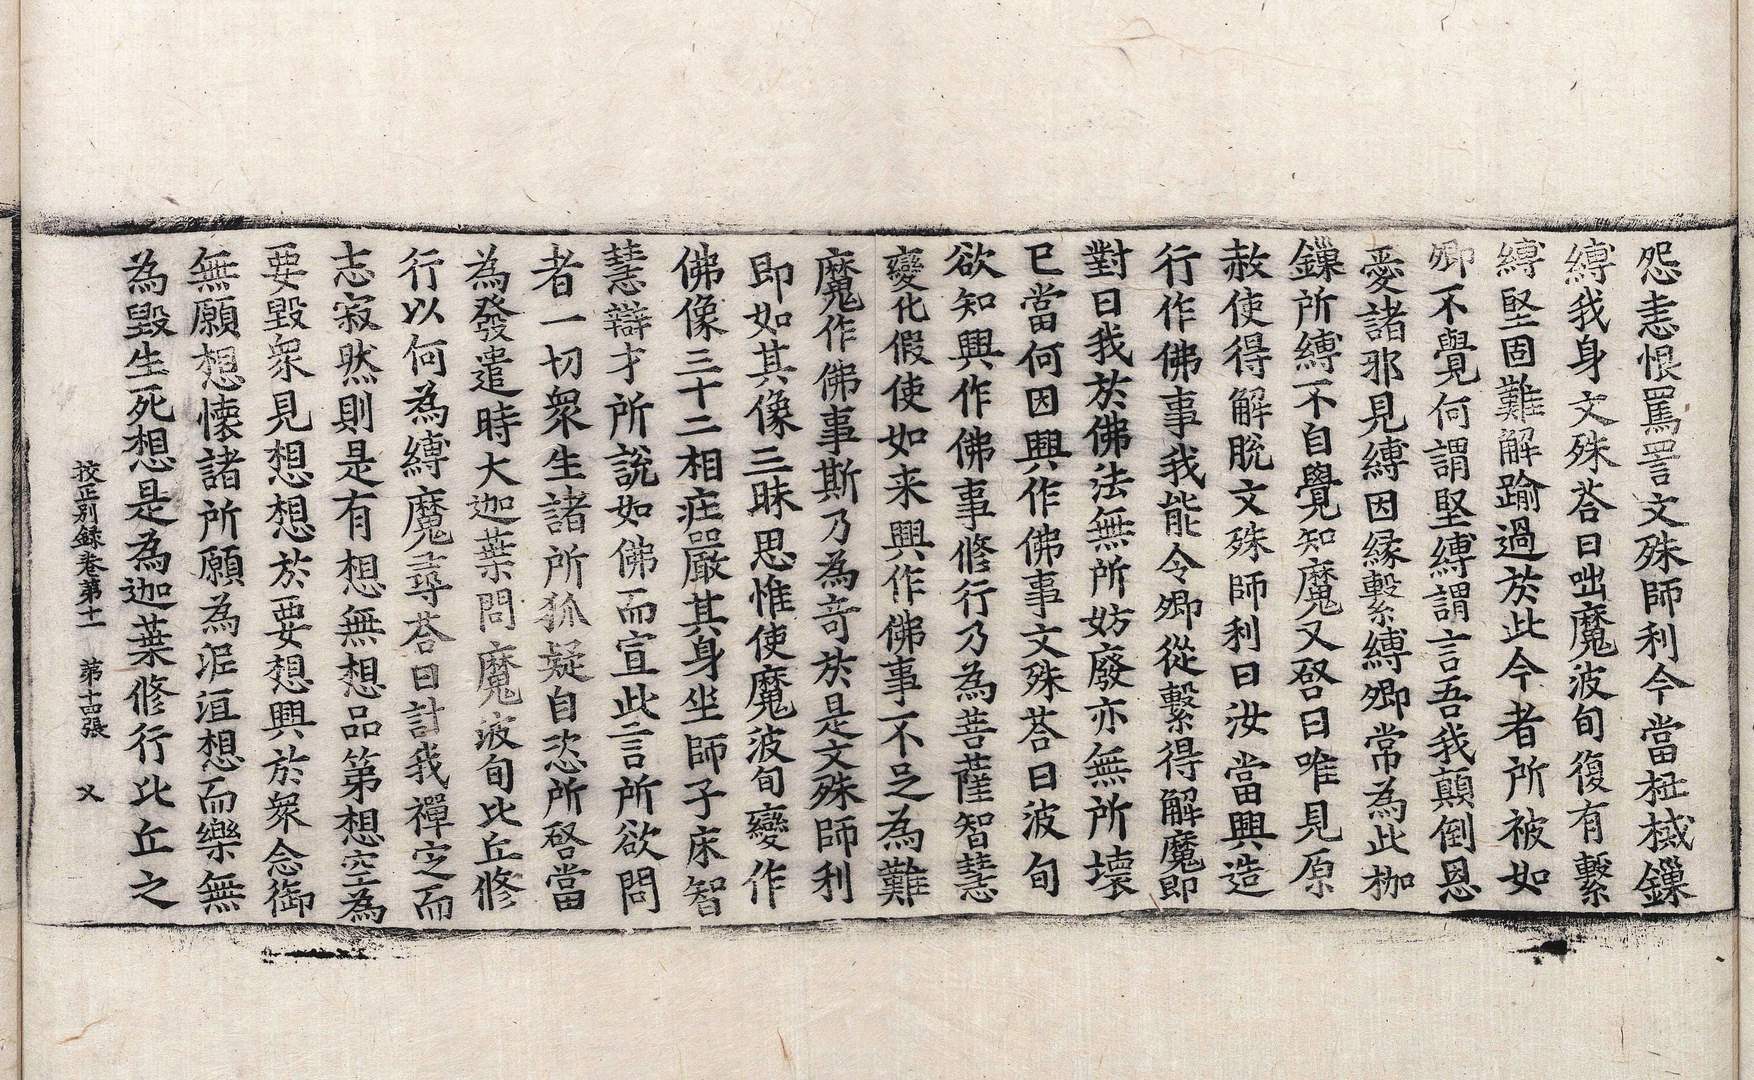 怨恚恨罵詈文殊師利今當杻械鏁
縛我身文殊荅曰咄魔波旬復有繫
縛堅固難解踰過於此今者所被如
卿不覺何謂堅縛謂言吾我顛倒恩
愛諸邪見縛因縁繫縛卿常為此枷
鏁所縛不自覺知魔又啓曰唯見原
赦使得解脫文殊師利曰汝當興造
行作佛事我能令卿從繫得解魔即
對曰我於佛法無所妨廢亦無所壞
已當何因興作佛事文殊荅曰波旬
欲知興作佛事修行乃為菩薩智慧
變化假使如来興作佛事不足為難
魔作佛事斯乃為奇於是文殊師利
即如其像三昧思惟使魔波旬變作
佛像三十二相莊嚴其身坐師子床智
慧辯才所說如佛而宣此言所欲問
者一切衆生諸所狐疑自恣所啓當
為發遣時大迦葉問魔波旬比丘修
行以何為縛魔尋荅曰計我禪定而
志寂然則是有想無想品第想空為
要毀衆見想想於要想興於衆念御
無願想懷諸所願為泥洹想而樂無
為毀生死想是為迦葉修行比丘之
挍正別録卷第十一 第十四張 乂